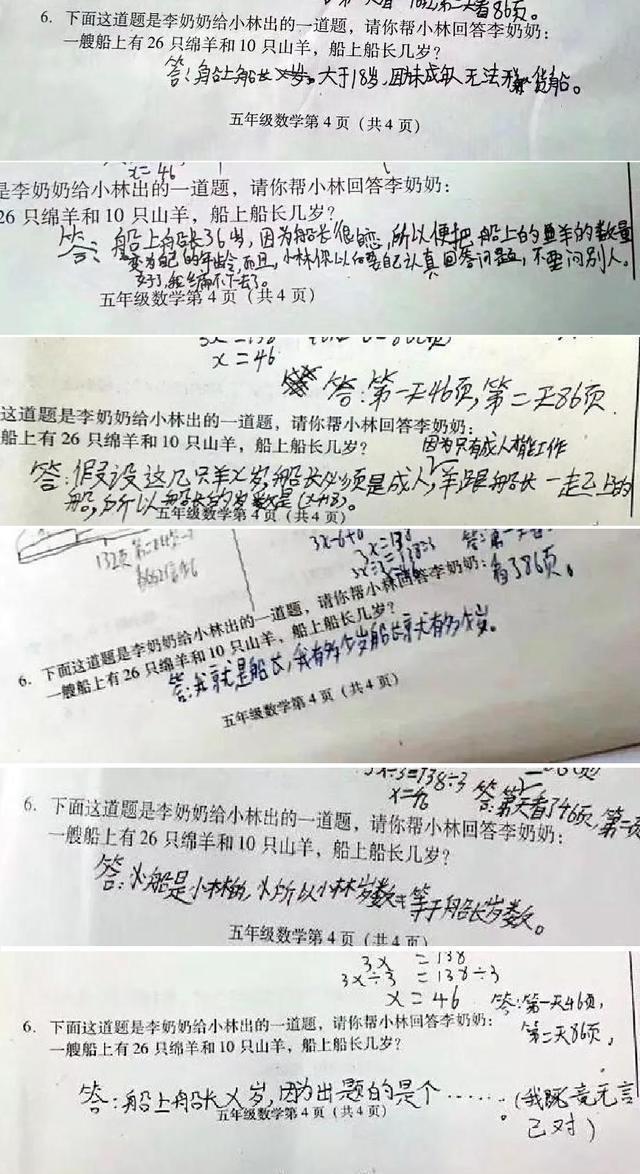 第二天看86页。
6. 下面这道题是李奶奶给小林出的一道题，请你帮小林回答李奶奶：
一艘船上有26只绵羊和10只山羊，船上船长几岁？
答：船上船长 大于18岁，因未成年人无法 货船。
五年级数学第4页（共4页）
x=46
是李奶奶给小林出的一道题，请你帮小林回答李奶奶：
26只绵羊和10只山羊，船上船长几岁？
答：船上船长36岁，因为船长很恋，所以便把船上的 羊的数量
变为自己的年龄，而且，小林你以后要自己认真回答问题，不要问别人。
好了，我编不下去了。
五年级数学第4页（共4页）
3x=138
x=46
答：第一天46页，第二天86页
这道题是李奶奶给小林出的一道题，请你帮小林回答李奶奶：
船上有26只绵羊和10只山羊，船上船长几岁？
因为只有成人才能工作
答：假设这几只羊x岁，船长必须是成人，羊跟船长一起上的
船，所以船长的岁数是（x+18）。
五年级数学第4页（共4页）
3x-6+6
3x=138
132页
看了86页。
6. 下面这道题是李奶奶给小林出的一道题，请你帮小林回答李奶奶：
一艘船上有26只绵羊和10只山羊，船上船长几岁？
答：我就是船长，我有多少岁船长就有多少岁。
五年级数学第4页（共4页）
3x÷3=138÷3
x=46
答：第一天看了46页，第二
6. 下面这道题是李奶奶给小林出的一道题，请你帮小林回答李奶奶：
一艘船上有26只绵羊和10只山羊，船上船长几岁？
答：船是小林的，所以小林岁数等于船长岁数。
五年级数学第4页（共4页）
3x =138
3x÷3 =138÷3
x=46
答：第一天46页，
第二天86页。
6. 下面这道题是李奶奶给小林出的一道题，请你帮小林回答李奶奶：
一艘船上有26只绵羊和10只山羊，船上船长几岁？
答：船上船长x岁，因为出题的是个……。（我既竟无言
己对）
五年级数学第4页（共4页）